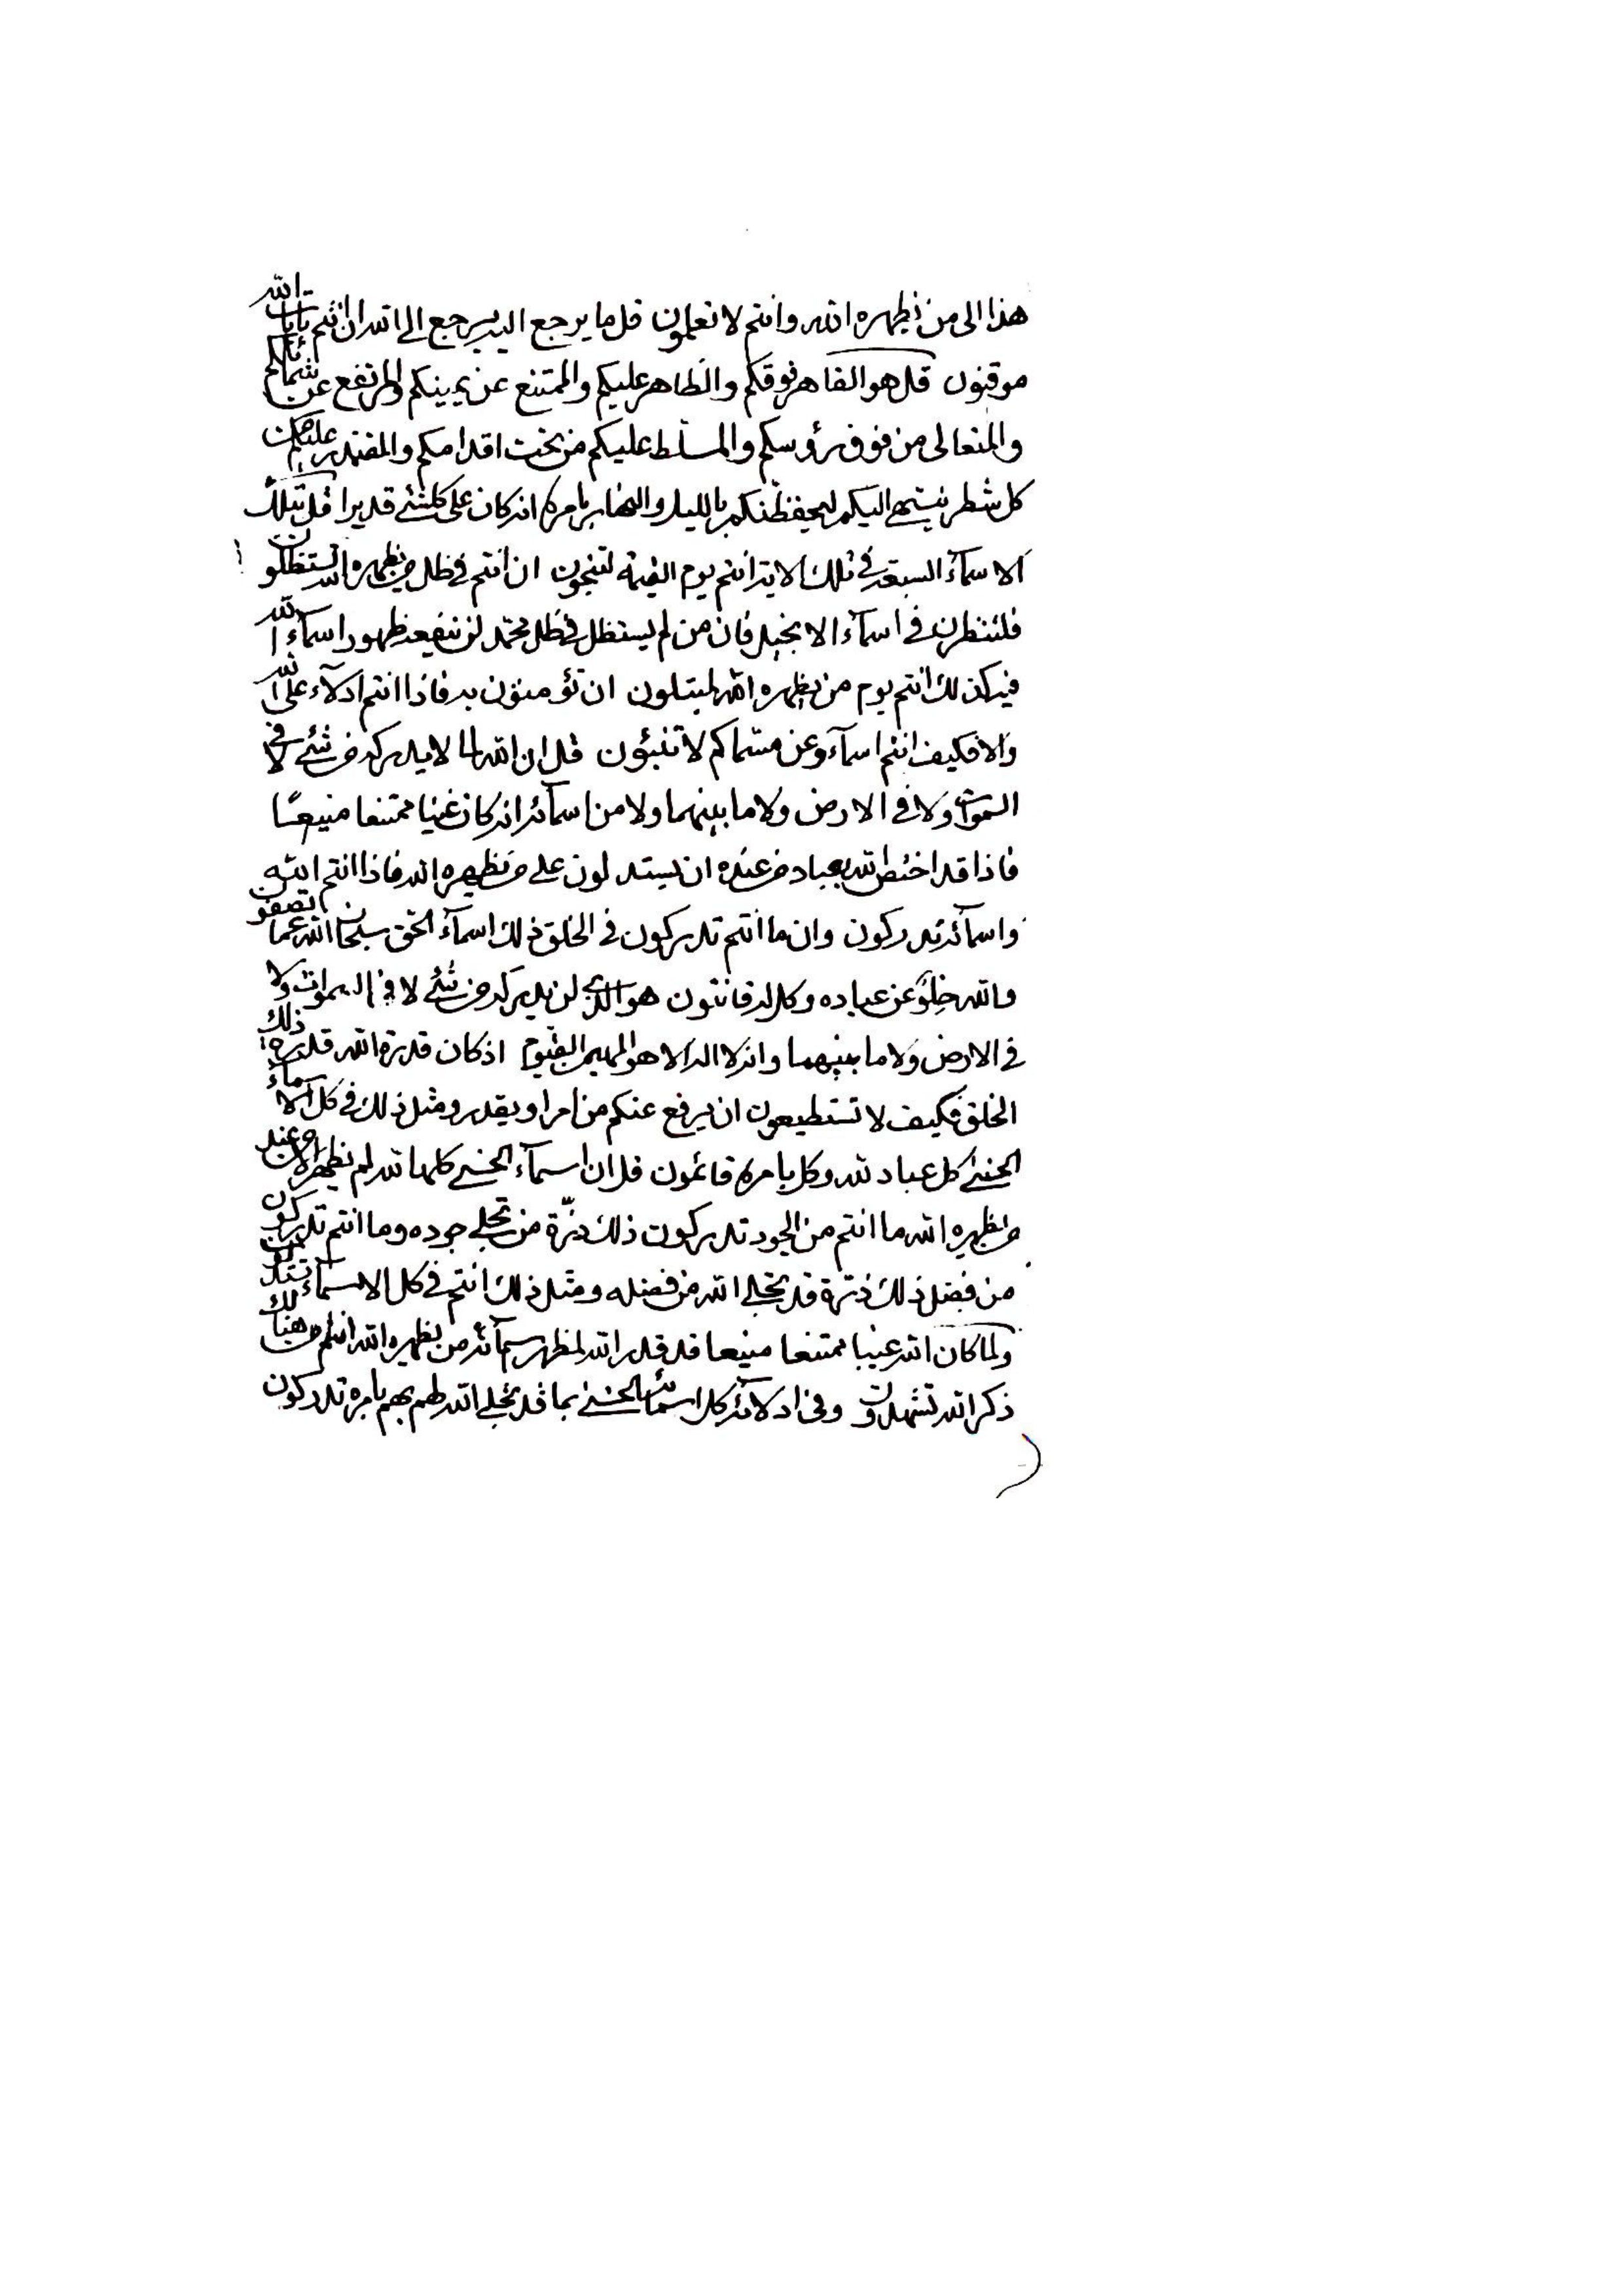 هذا الى من يظهره الله وانتم لا تعلمون قل ما يرجع اليه يرجع الى الله ان انتم بآيات الله
موقنون قل هو القاهر فوقكم والظاهر عليكم والممتنع عن يمينكم والمرتفع عن شمائلكم
والمتعالى من فوق رؤسكم والمسلط عليكم من تحت اقدامكم والمقتدر عليكم من
كل شطر ينتهى اليكم ليحفظنكم بالليل والنهار بامره انه كان على كلشئ قديرا قل تلك
الاسمآء السبعة فى تلك الاية انتم يوم القيمة لتنجون ان انتم فى ظل من يظهره الله تستظلون
فلتنظرن فى اسمآء الانجيل فان من لم يستظل فى ظل محمد لن ينفعه ظهور اسمآء الله
فيكذلك انتم يوم من يظهره الله لتبتلون ان تؤمنون به فاذا انتم ادلآء على الله
والا فكيف انتم اسمآء وعن مسماكم لا تنبئون قل ان الله لما لا يدركه من شئ لا فى
السموات ولا فى الارض ولا ما بينهما ولا من اسمآئه انه كان غنيا ممتنعا منيعا
فاذا قد اختص الله بعباد من عنده ان يستدلون على من يظهره الله فاذا انتم الله
واسمآئه تدركون وان ما انتم تدركون فى الخلق ذلك اسمآء الحق سبحان الله عما تصفون
والله خلو عن عباده وكل له قانتون هو الذى لن يدركه من شئ لا فى السموات ولا
فى الارض ولا ما بينهما وانه لا اله الا هو المهيمن القيوم اذ كان قدرة الله قدرة ذلك
الخلق فكيف لا تستطيعون ان يرفع عنكم من امر او يقدر ومثل ذلك فى كل الاسمآء
الحسنى كل عباد لله وكل بامره قائمون قل ان اسمآء الحسنى كلها لله لم يظهر الا من عند
من يظهره الله ما انتم من الجود تدركون ذلك ذرّة من تجلى جوده وما انتم تدركون
من فضل ذلك ذرة قد تجلى الله من فضله ومثل ذلك انتم فى كل الاسمآء لتدركون
ولما كان الله غيبا ممتنعا منيعا قد قدر الله لمظهر اسمآئه من يظهره الله انتم من هنالك
ذكر الله تشهدون وفى ادلآئه كل اسمآئه الحسنى بما قد تجلى الله لهم بهم بامره تدركون